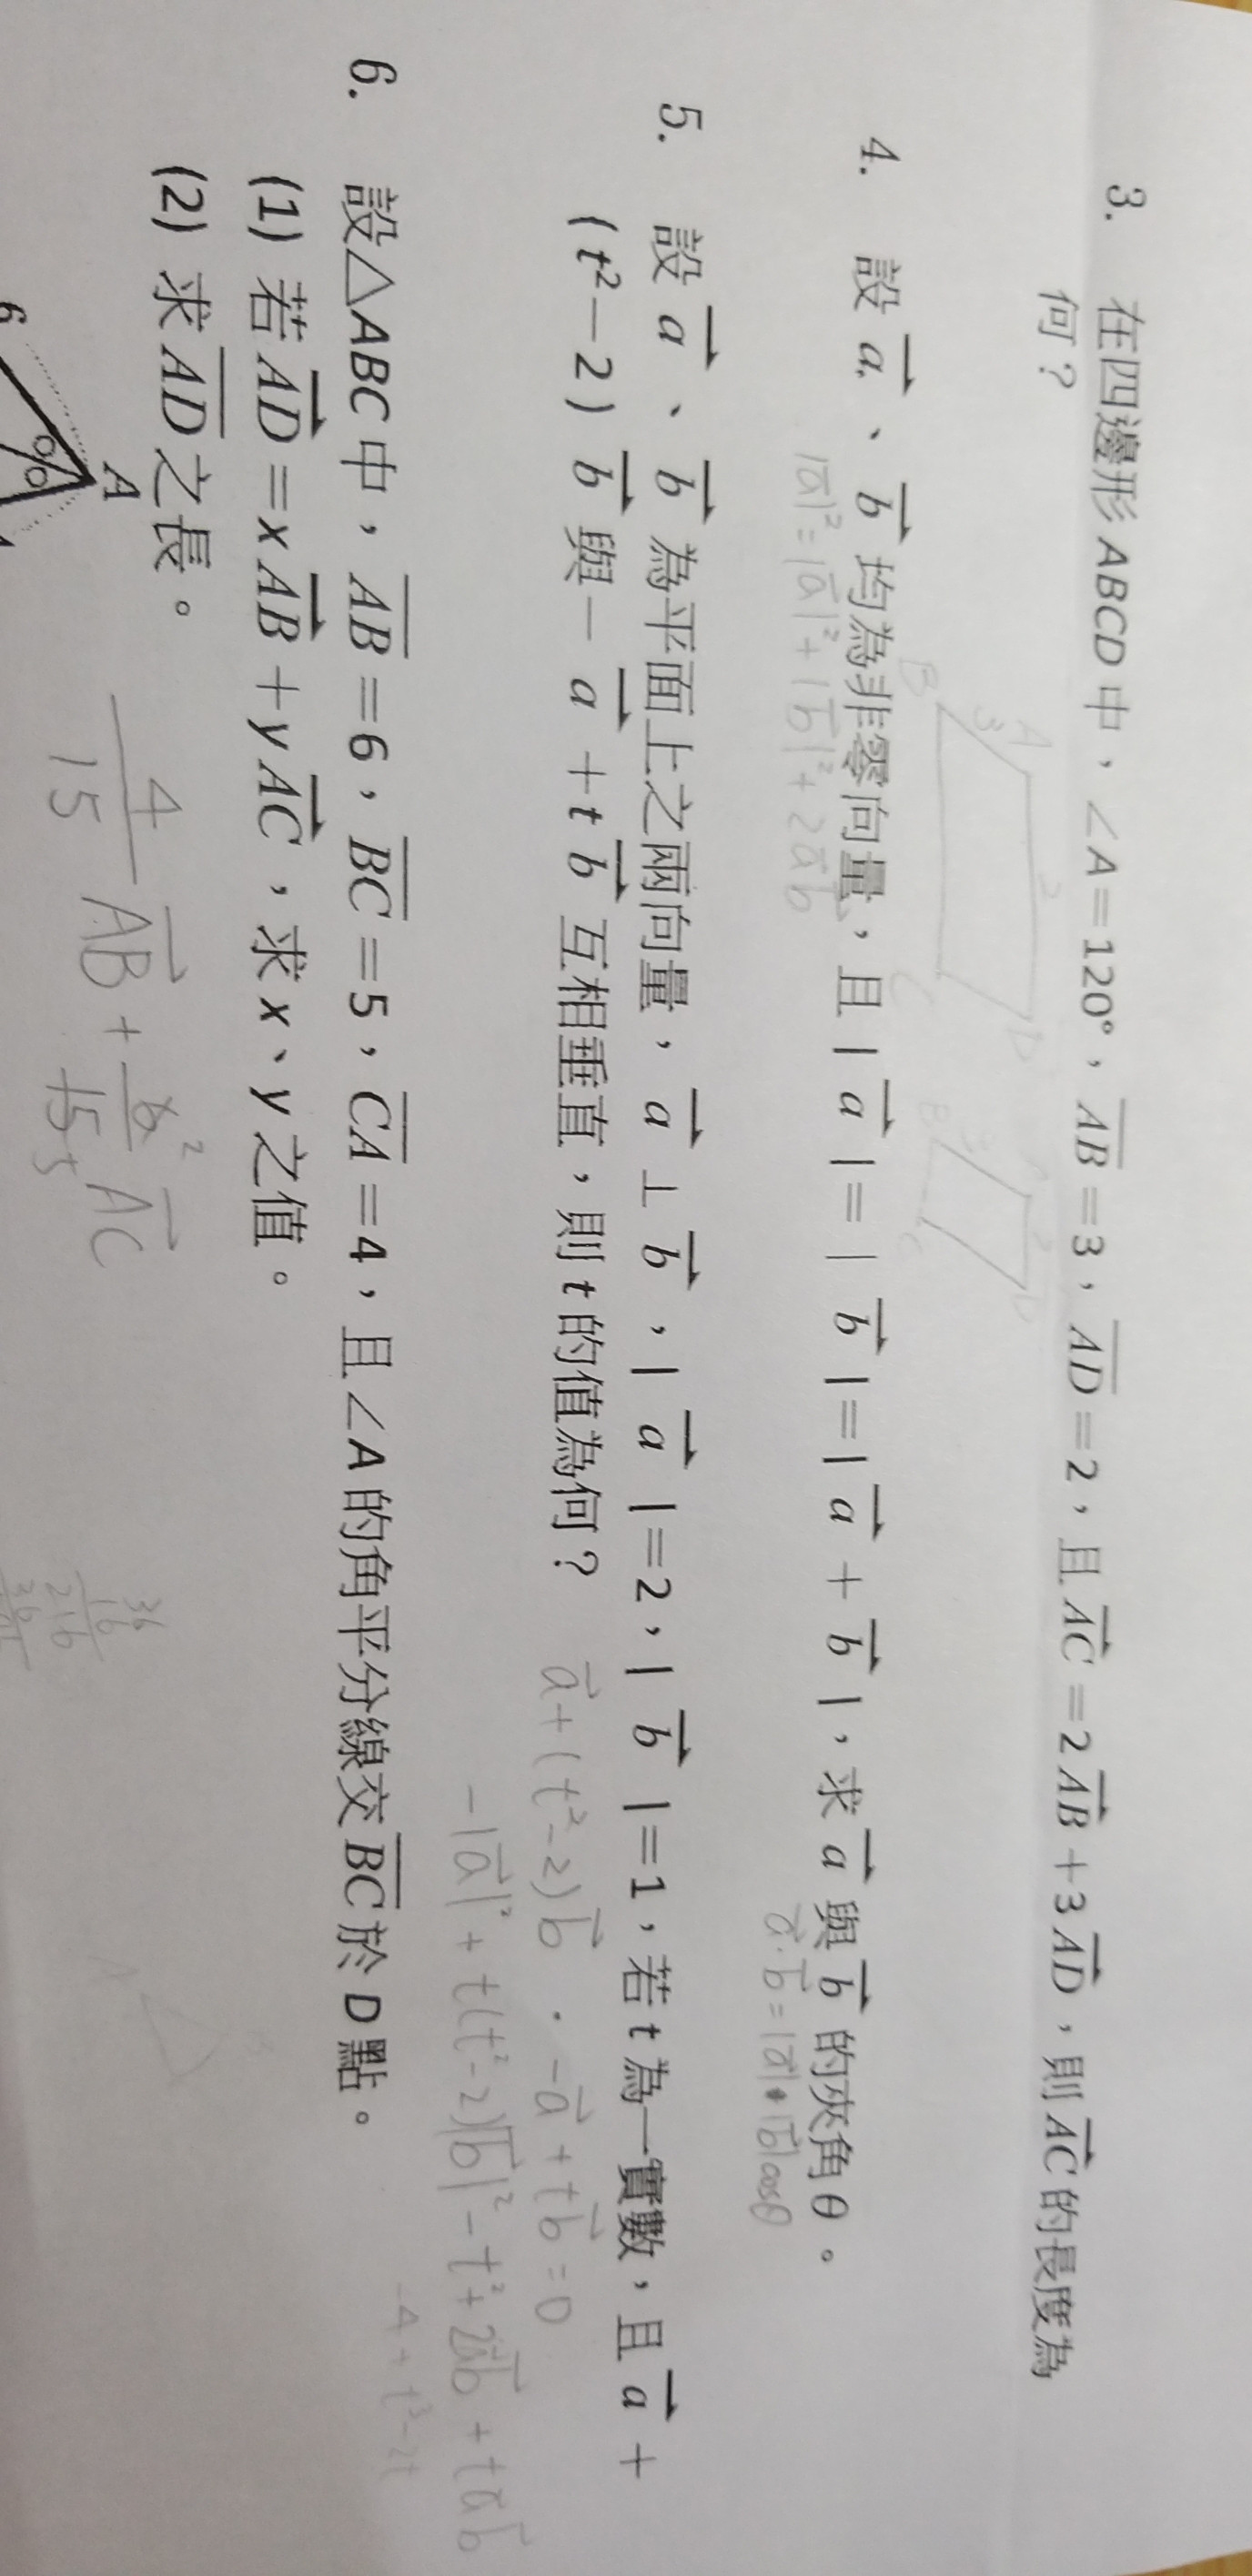 3. 在四邊形ABCD中，∠A=120°，AB=3，AD=2，且AC=2AB+3AD，則AC的長度為
何？
A
3
2
B
C
D
A
3
2
B
C
D
4. 設a、b均為非零向量，且|a|=|b|=|a+b|，求a與b的夾角θ。
|a|²=|a|²+|b|²+2ab
a·b=|a|·|b|cosθ
5. 設a、b為平面上之兩向量，a⊥b，|a|=2，|b|=1，若t為一實數，且a+
(t²-2)b與-a+tb互相垂直，則t的值為何？
a+(t²-2)b · -a+tb=0
-|a|²+t(t²-2)|b|²-t²+2ab+tab
-4+t³-2t
6. 設△ABC中，AB=6，BC=5，CA=4，且∠A的角平分線交BC於D點。
(1) 若AD=xAB+yAC，求x、y之值。
(2) 求AD之長。
4/15 AB + 6/15 AC
2
5
36
16
216
36
A
6